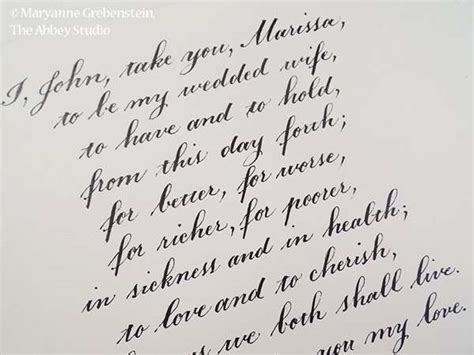 ©Maryanne Grebenstein,
The Abbey Studio
I, John, take you, Marissa,
to be my wedded wife,
to have and to hold,
from this day forth;
for better, for worse,
for richer, for poorer,
in sickness and in health;
to love and to cherish,
we both shall live.
you my love.